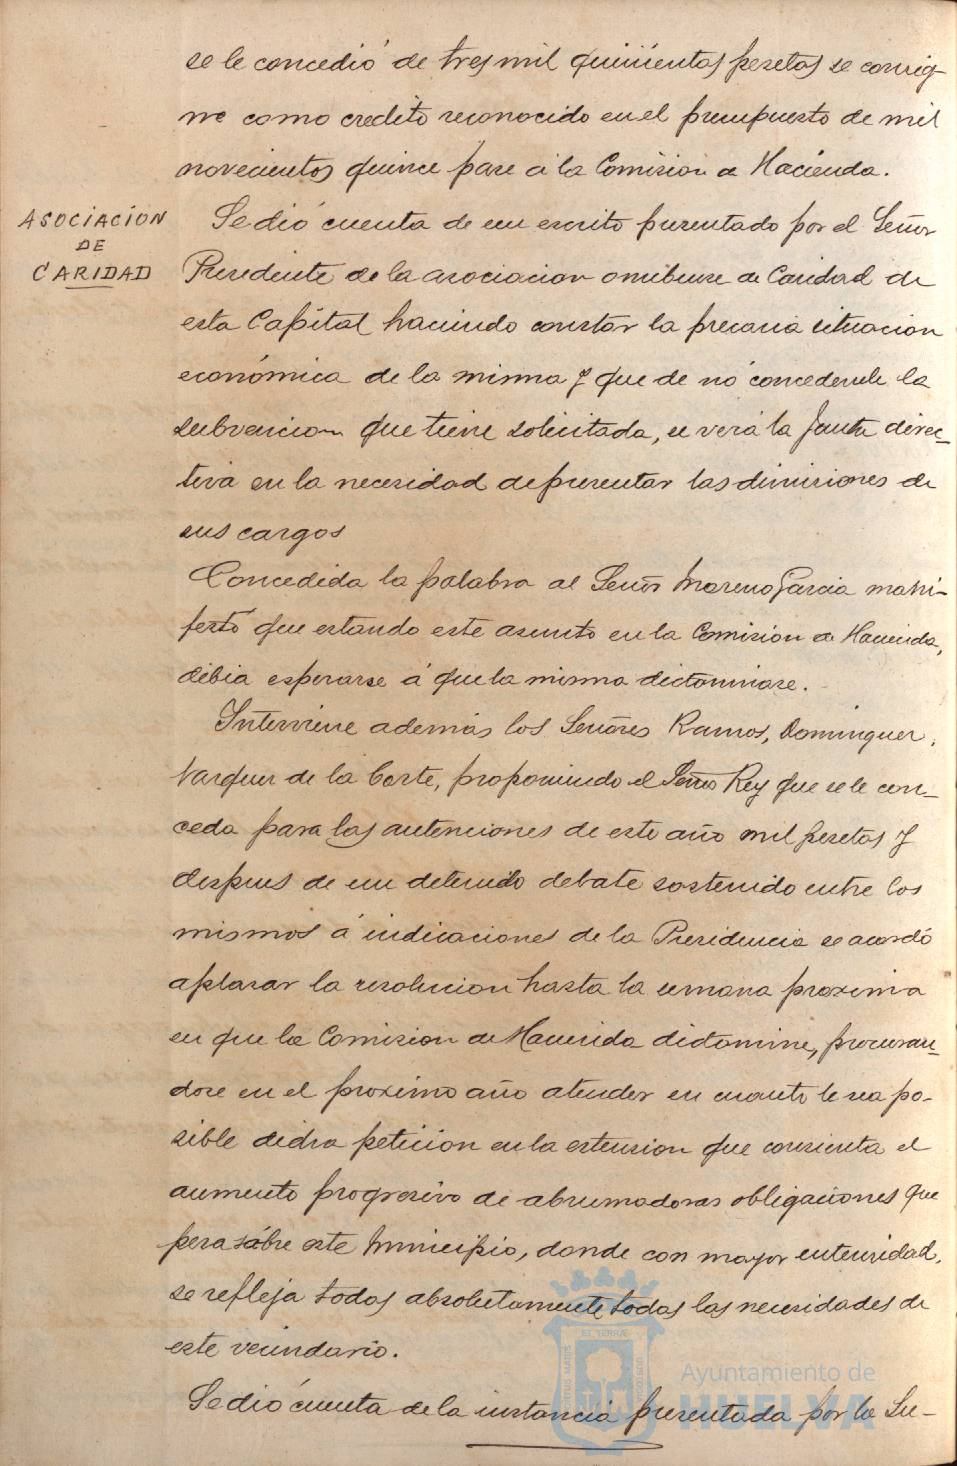 se le concedió de tres mil quinientas pesetas se consig-
ne como credito reconocido en el presupuesto de mil
novecientos quince pase á la Comision de Hacienda.
ASOCIACIÓN
DE
CARIDAD
Se dió cuenta de un escrito presentado por el Señor
Presidente de la asociacion onubense de Caridad de
esta Capital haciendo constar la precaria situacion
económica de la misma y que de nó concedersele la
subvencion que tiene solicitada, se verá la Junta direc-
tiva en la necesidad de presentar las dimisiones de
sus cargos
Concedida la palabra al Señor Moreno Garcia mani-
festó que estando este asunto en la Comision de Hacienda,
debia esperarse á que la misma dictaminase.
Interviene además los Señores Ramos, Dominguez,
Vazquez de la Corte, proponiendo el Señor Rey que se le con-
ceda para las autenciones de este año mil pesetas y
despues de un detenido debate sostenido entre los
mismos á indicaciones de la Presidencia se acordó
aplazar la resolucion hasta la semana proxima
en que la Comision de Hacienda dictamine, procuran-
dose en el proximo año atender en cuanto le sea po-
sible dicha peticion en la estension que consienta el
aumento progresivo de abrumadoras obligaciones que
pesa sobre este Municipio, donde con mayor intensidad,
se refleja todas absolutamente todas las necesidades de
este vecindario.
Se dió cuenta de la instancia presentada por la Su-
Ayuntamiento de
HUELVA